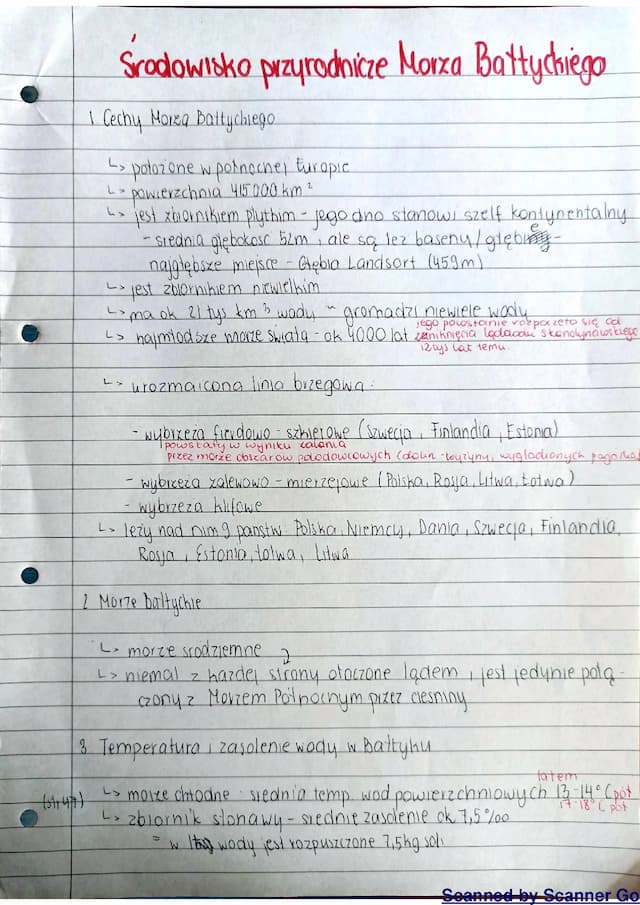 Środowisko przyrodnicze Morza Bałtyckiego
1 Cechy Morza Bałtyckiego
↳ położone w północnej Europie
↳ powierzchnia 415 000 km²
↳ jest zbiornikiem płytkim - jego dno stanowi szelf kontynentalny
- średnia głębokość 52m, ale są też baseny/głębie -
najgłębsze miejsce - Głębia Landsort (459m)
↳ jest zbiornikiem niewielkim
↳ ma ok 21 tys km³ wody - gromadzi niewiele wody
↳ najmłodsze morze świata - ok 4000 lat
jego powstanie rozpoczęło się od
zniknięcia lądolodu skandynawskiego
12 tys lat temu.
↳ urozmaicona linia brzegowa
- wybrzeża fierdowo - szkierowe (Szwecja, Finlandia, Estonia)
powstały w wyniku zalania
przez morze obszarów polodowcowych (dolin
wygładzonych
- wybrzeża zalewowo - mierzejowe (Polska, Rosja, Litwa, Łotwa)
- wybrzeża klifowe
↳ leży nad nim 9 państw: Polska, Niemcy, Dania, Szwecja, Finlandia,
Rosja, Estonia, Łotwa, Litwa
2 Morze Bałtyckie
↳ morze śródziemne
↳ niemal z każdej strony otoczone lądem, jest jedynie połą-
czony z Morzem Północnym przez cieśniny
3 Temperatura i zasolenie wody w Bałtyku
latem
(str 47) ↳ morze chłodne - średnia temp. wód powierzchniowych 13-14° (pół
17-18° (pół
↳ zbiornik słonawy - średnie zasolenie ok 7,5‰
= w wody jest rozpuszczone 7,5kg soli
Scanned by Scanner Go